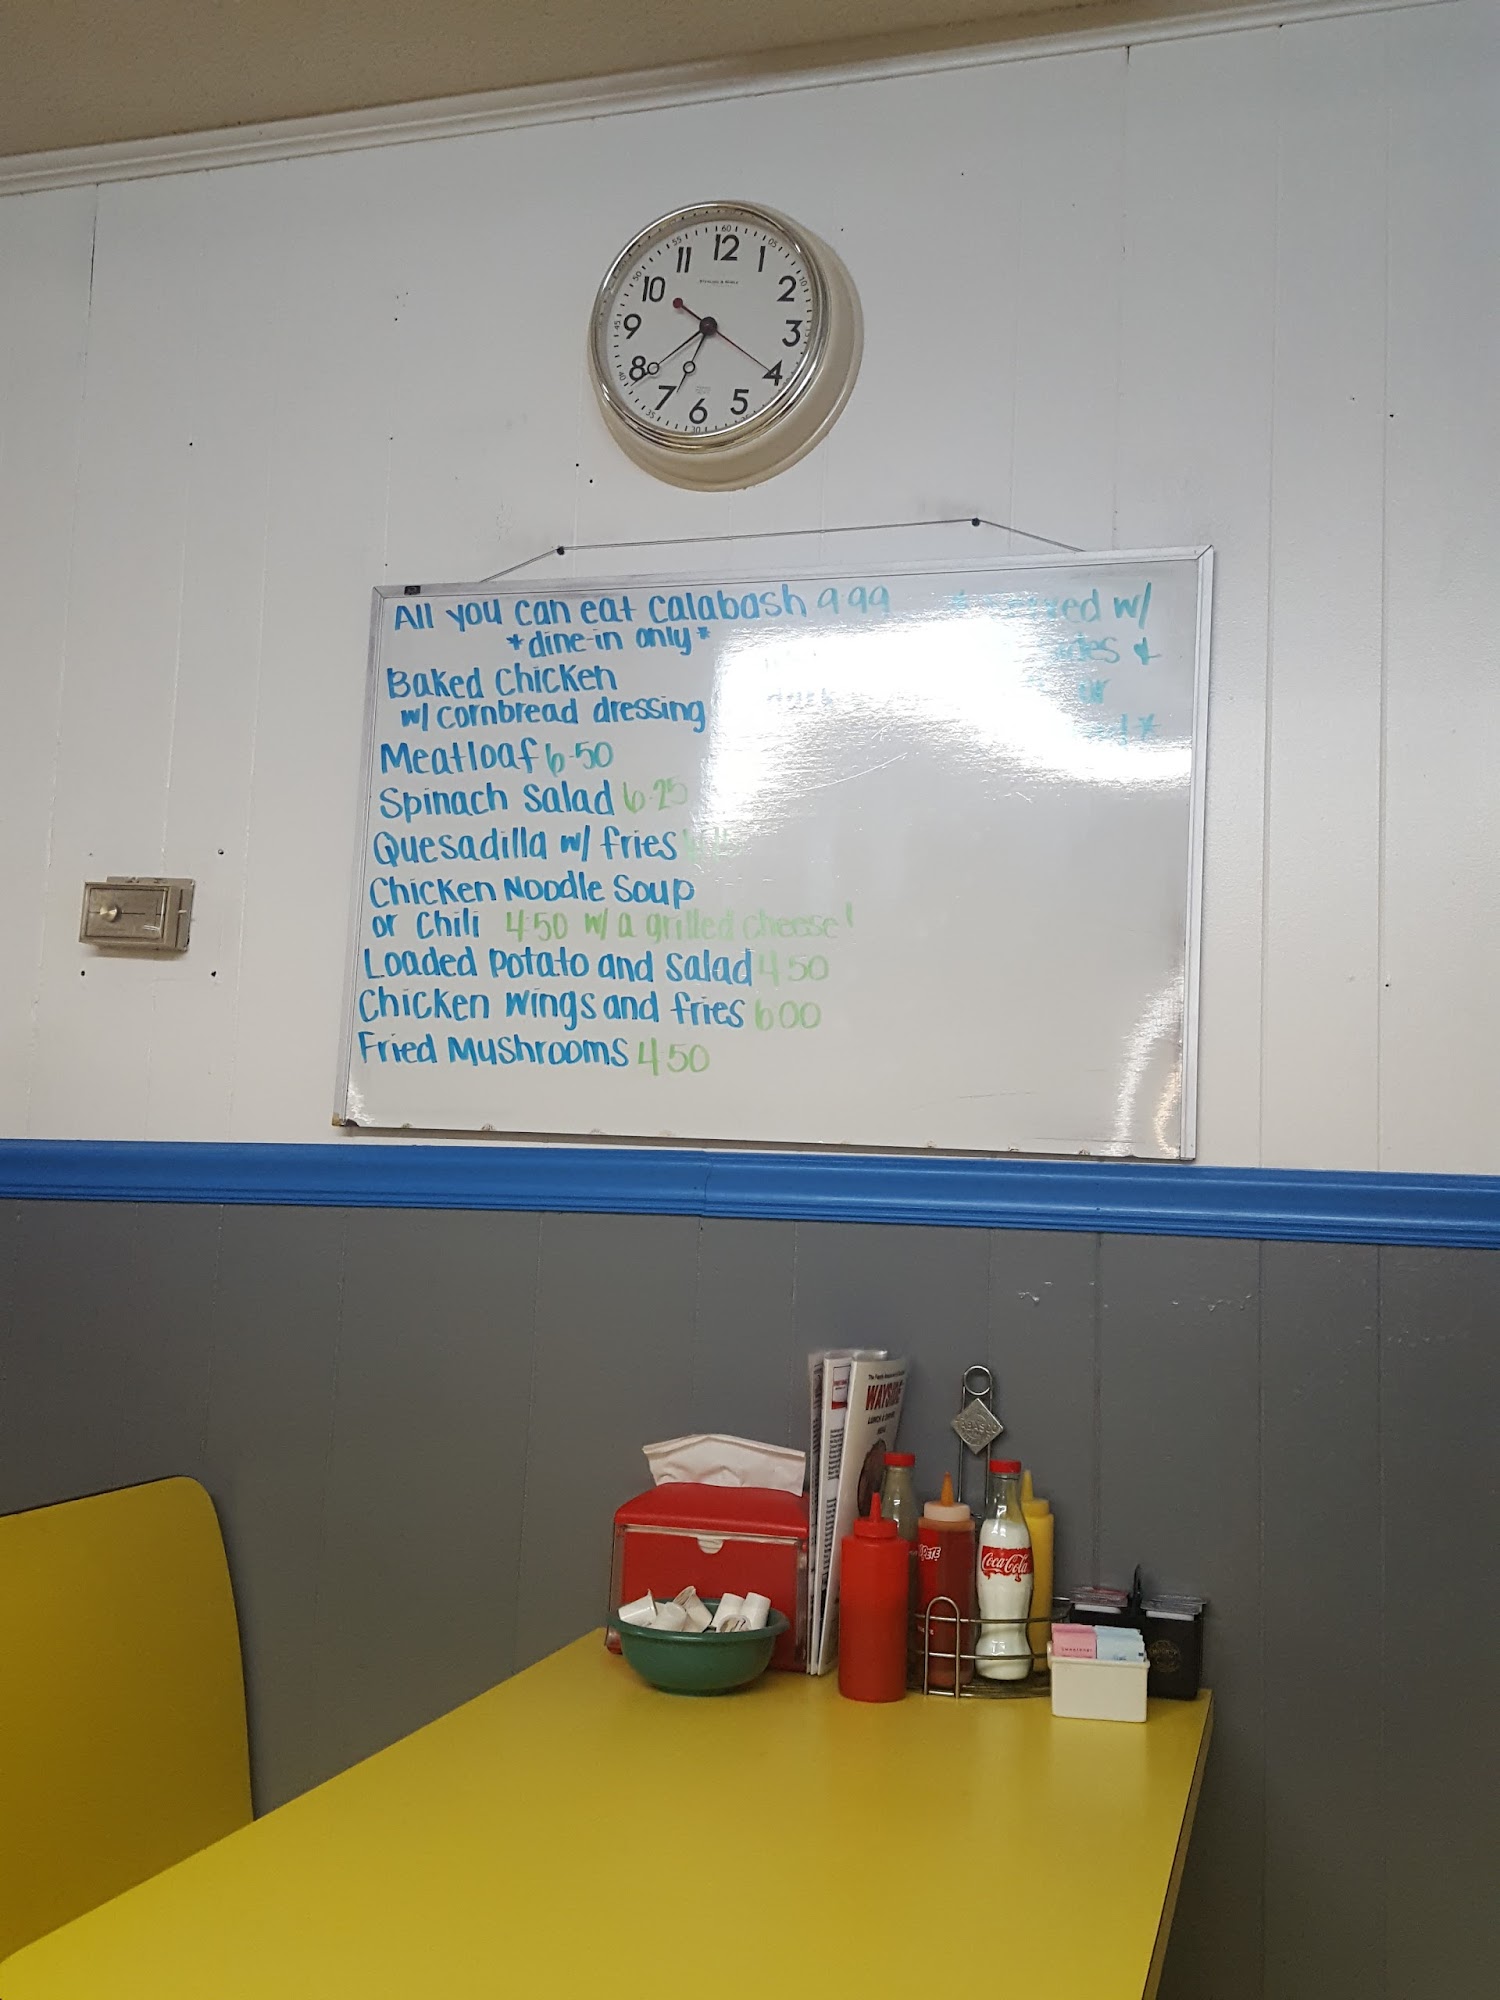 60
55
05
50
10
45
15
40
35
30
12
11
1
10
2
9
3
8
4
7
5
6
All you can eat calabash 9.99
w/
*dine-in only*
Baked chicken
or
w/ cornbread dressing
dark
Meatloaf 6.50
Spinach salad 6.25
Quesadilla w/ fries
Chicken Noodle Soup
or Chili 4.50 w/ a grilled cheese!
Loaded potato and salad 4.50
Chicken wings and fries 6.00
Fried Mushrooms 4.50
WAYSIDE
Coca-Cola